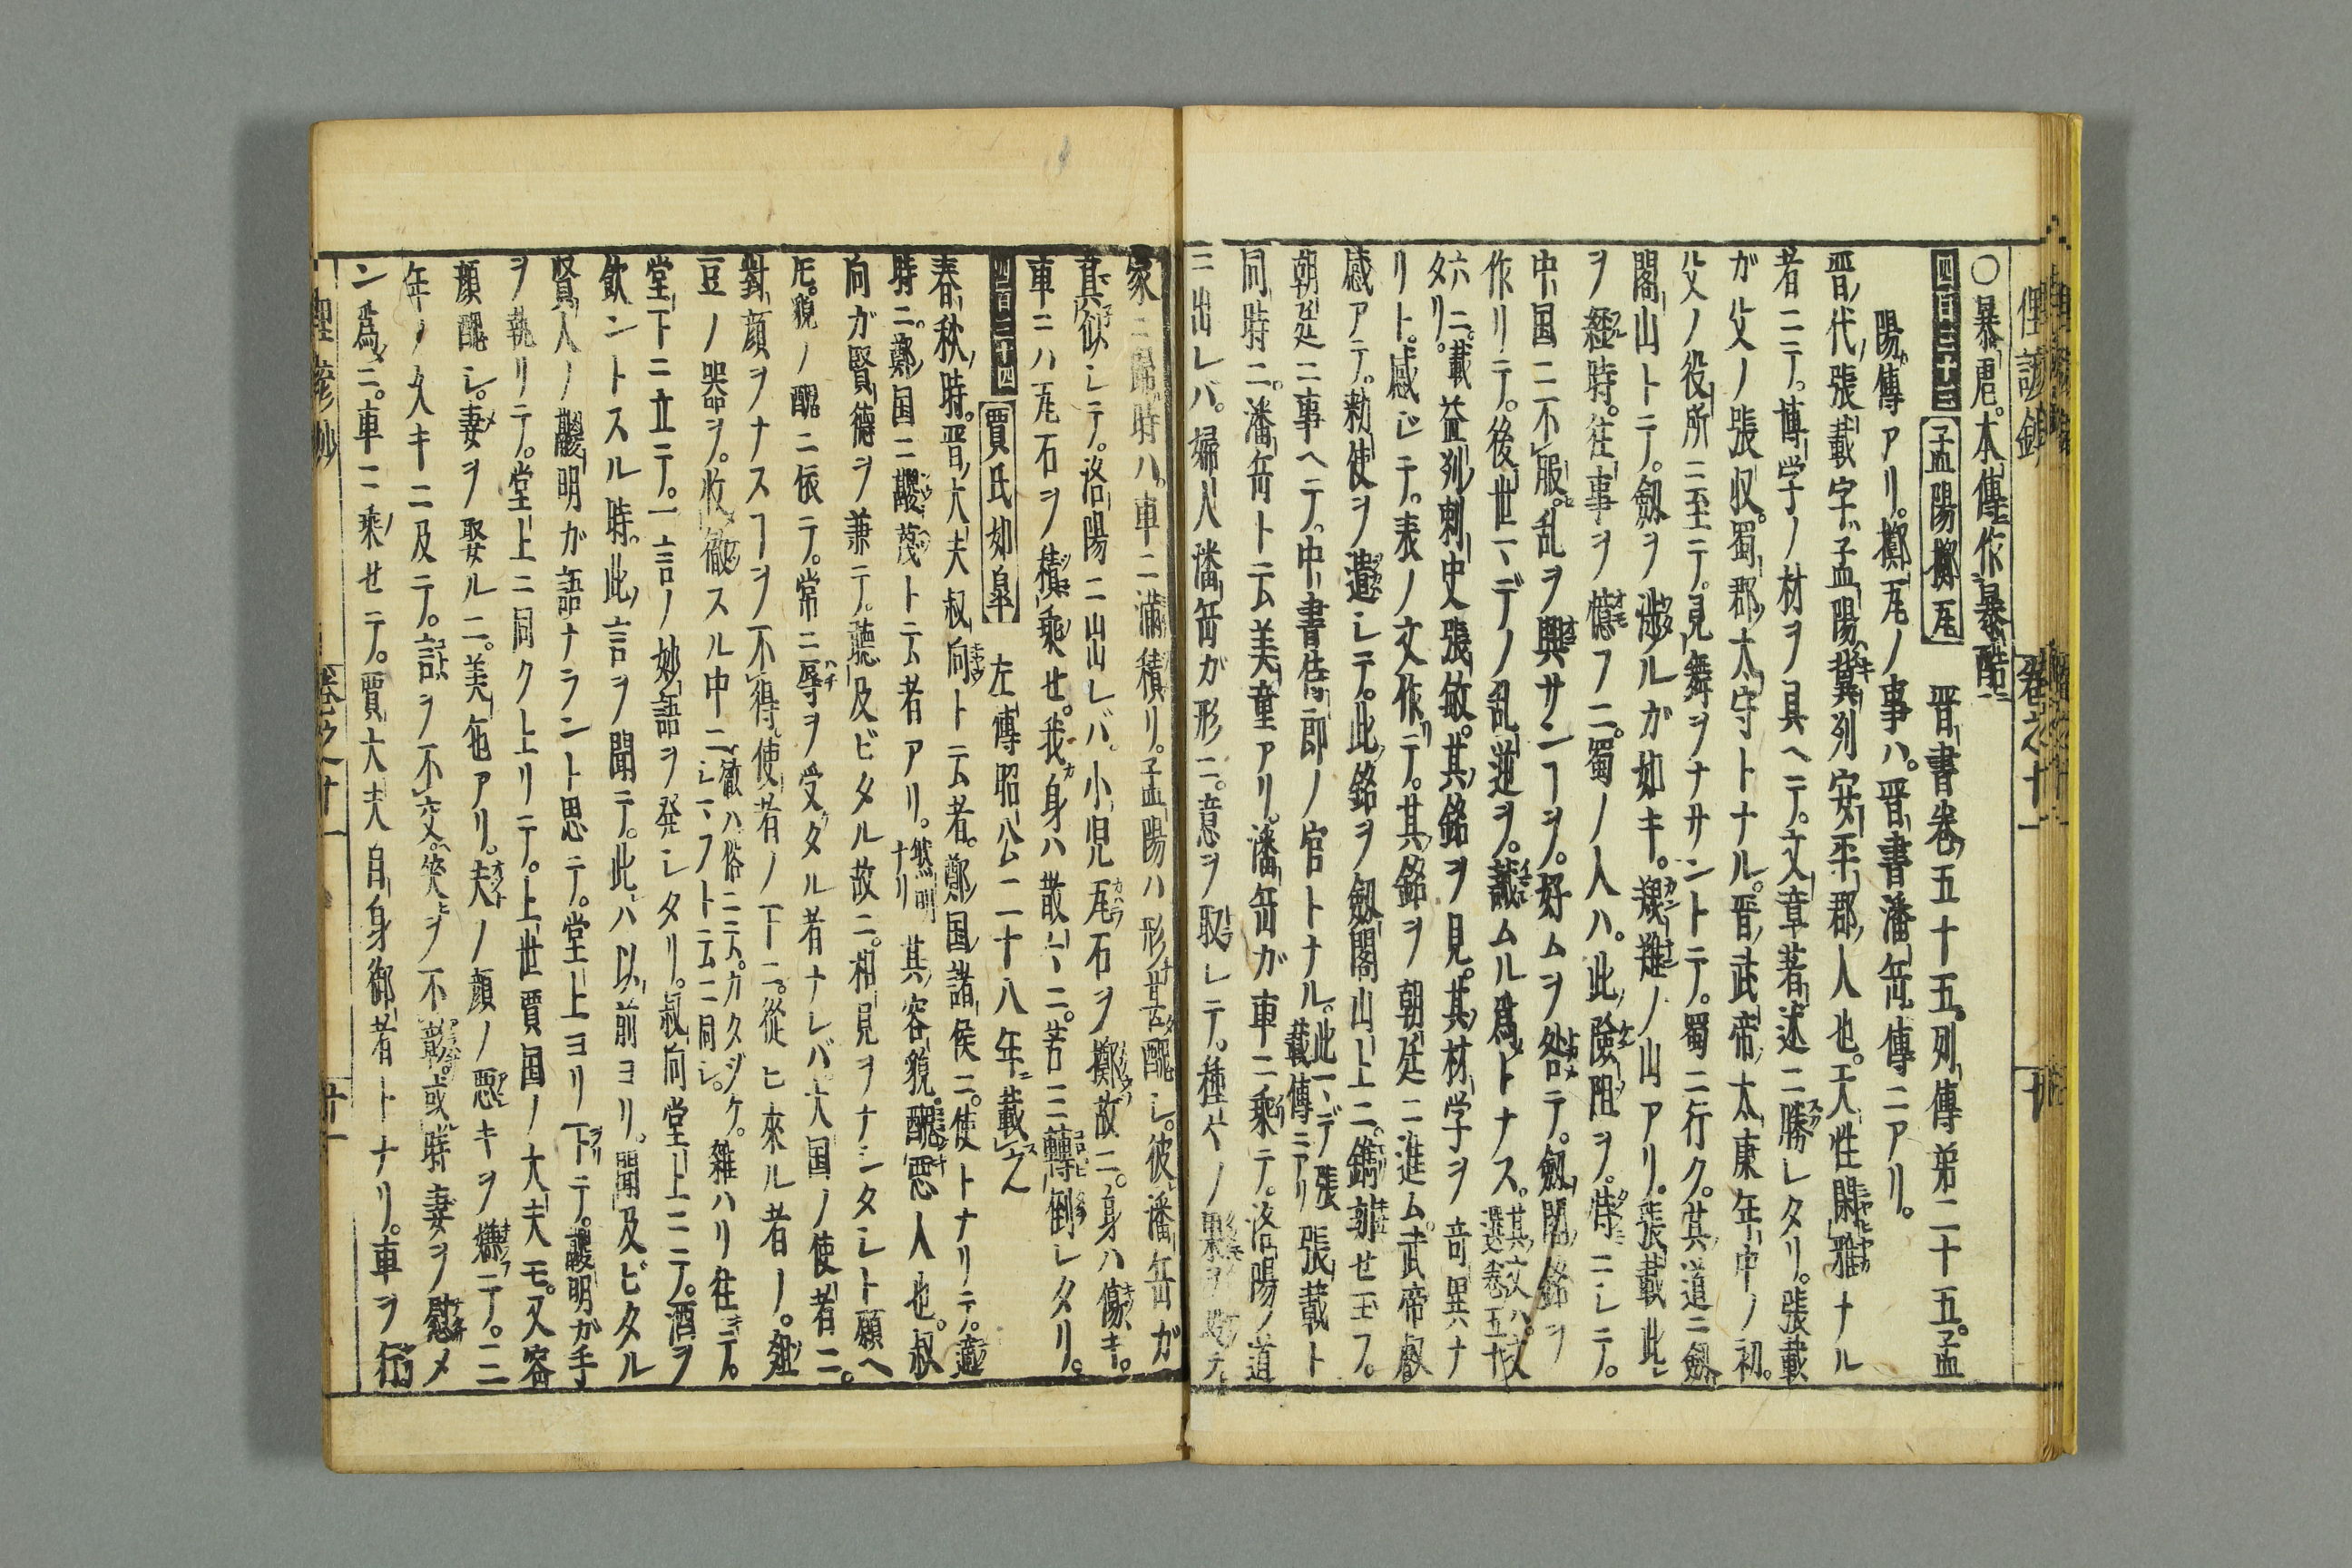 俚諺鈔 卷之十一
○暴君。本傳作暴酷ニ
四百三十三 孟陽擲瓦 晋書卷五十五。列傳第二十五。孟
陽傳アリ。擲瓦ノ事ハ。晋書潘岳傳ニアリ。
晋代張載字孟陽冀列安平郡人也。天性閑雅ナル
者ニテ。博学ノ材ヲ具ヘテ。文章著述ニ勝レタリ。張載
ガ父ノ張収。蜀郡太守トナル。晋武帝太康年中ノ初。
父ノ役所ニ至テ。見舞ヲナサントテ。蜀ニ行ク。其道ニ劔
閣山トテ。劔ヲ渉ルガ如キ。艱難ノ山アリ。張載此
ヲ経時。往事ヲ憶フニ。蜀ノ人ハ。此險阻ヲ。恃ニシテ。
中国ニ不服。乱ヲ興サンヿヲ。好ムヲ咎テ。劔閣銘ヲ
作リテ。後世マデノ乱逆ヲ。誡ムル爲トナス。其文ハ。文選卷五十六ニ。載
タリ。益列刺史張敏。其銘ヲ見。其材学ヲ奇異ナ
リト。感ジテ。表ノ文作テ。其銘ヲ朝廷ニ進ム。武帝叡
感アテ。勅使ヲ遣シテ。此銘ヲ劔閣山上ニ。鐫刻セ玉フ。
朝廷ニ事ヘテ。中書侍郎ノ官トナル。此マデ張載傳ニアリ 張載ト
同時ニ。潘岳ト云美童アリ。潘岳ガ車ニ乘テ。洛陽ノ道
ニ出レバ。婦人潘岳ガ形ニ。意ヲ取レテ。種々ノ菓ヲ投テ
家ニ歸時ハ。車ニ滿積リ。孟陽ハ形甚醜シ。彼潘岳ガ
眞似シテ。洛陽ニ出レバ。小児瓦石ヲ擲故ニ。身ハ傷キ。
車ニハ瓦石ヲ積乘セ。我身ハ散々ニ。苦ミ轉倒レタリ。
四百三十四 賈氏如皐 左傳昭公二十八年ニ載之
春秋時。晋大夫叔向ト云者。鄭国諸侯ニ。使トナリテ。適
時ニ。鄭国ニ鬷蔑ト云者アリ。然明ナリ 其容貌醜悪人也。叔
向ガ賢德ヲ兼テ。聽及ビタル故ニ。相見ヲナシタシト願ヘ
㐧。貌ノ醜ニ依テ。常ニ辱ヲ受タル者ナレバ。大国ノ使者ニ。
對顔ヲナスヿヲ不得。使者ノ下ニ。從ヒ來ル者ノ。俎
豆ノ器ヲ。收徹スル中ニ 徹ハ俗ニ云。カタヅケ。シマフト云ニ同シ。 雜ハリ往テ。
堂下ニ立テ。一言ノ妙語ヲ発シタリ。叔向堂上ニテ。酒ヲ
飲ントスル時。此言ヲ聞テ。此ハ以前ヨリ。聞及ビタル
賢人ノ鬷明ガ語ナラント思テ。堂上ヨリ下テ。鬷明ガ手
ヲ執リテ。堂上ニ同ク上リテ。上世賈国ノ大夫モ。又容
顔醜シ。妻ヲ娶ルニ。美色アリ。夫ノ顔ノ悪キヲ嫌テ。三
年ノ久キニ及テ。言ヲ不交。笑ヲ不敢。或時妻ヲ慰メ
ン爲ニ。車ニ乘セテ。賈大夫自身御者トナリ。車ヲ行
卷之十一 廿一